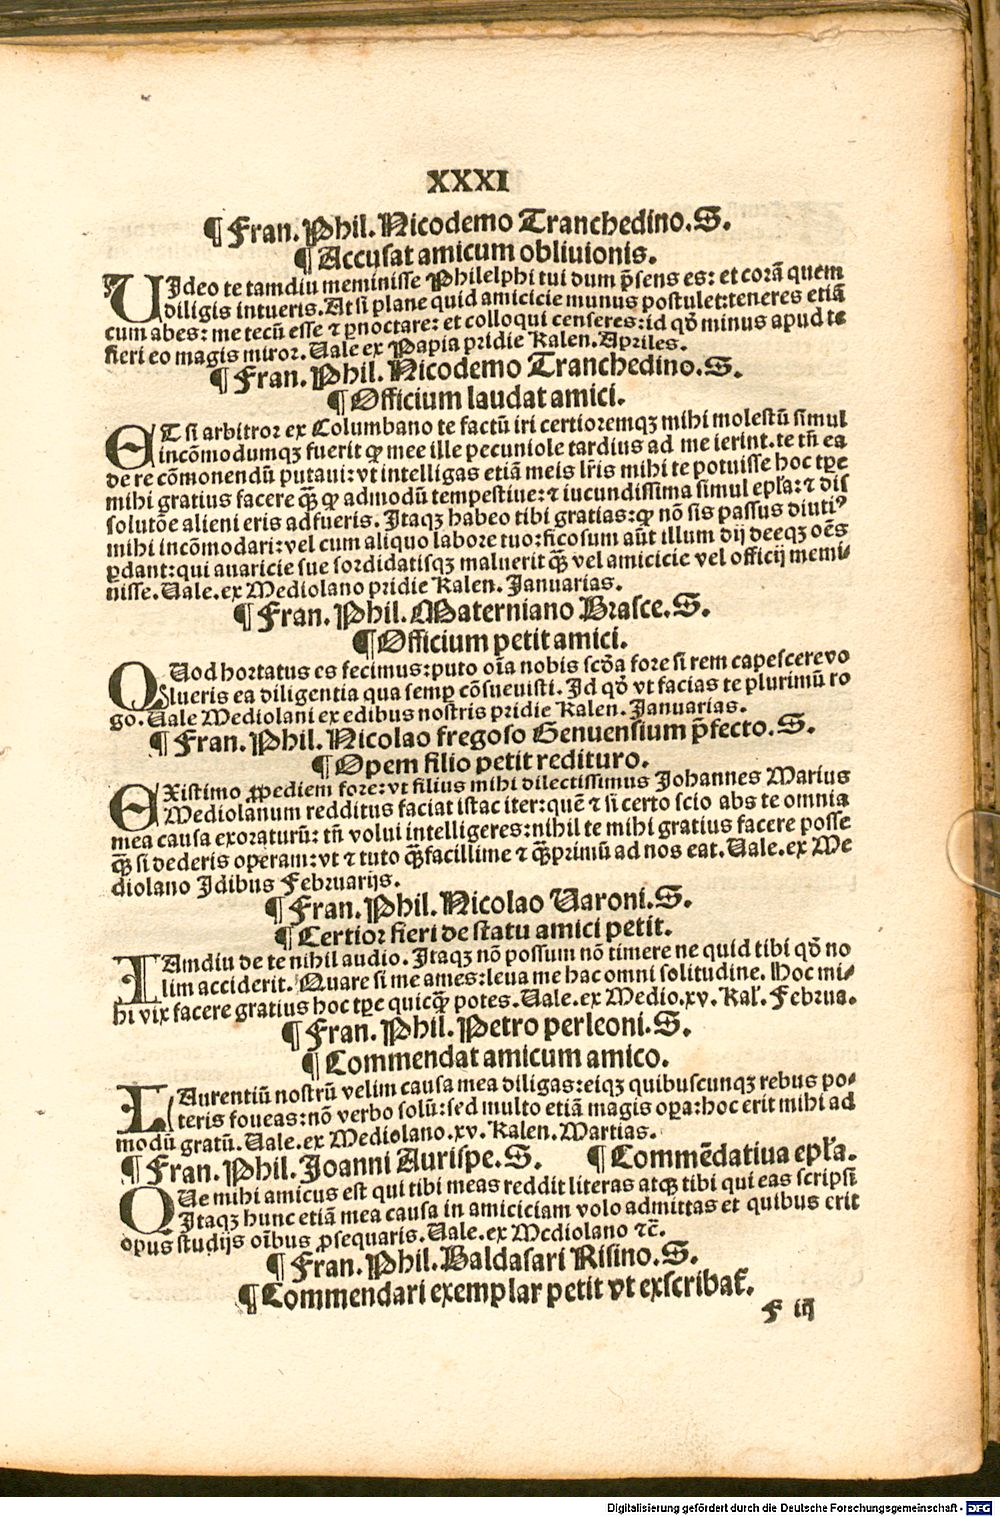 XXXI
¶ Fran. Phil. Nicodemo Tranchedino. S.
¶ Accusat amicum obliuionis.
UJdeo te tamdiu meminisse Philelphi tui dum p̃sens es: et corā quem
diligis intueris. At si plane quid amicicie munus postulet: teneres etiā
cum abes: me tecū esse ⁊ ꝑnoctare: et colloqui censeres: id qd̓ minus apud te
fieri eo magis miror. Uale ex Papia pridie Kalen. Apriles.
¶ Fran. Phil. Nicodemo Tranchedino. S.
¶ Officium laudat amici.
ET si arbitror ex Columbano te factū iri certioremqꝫ mihi molestū simul
incōmodumqꝫ fuerit ꝙ mee ille pecuniole tardius ad me ierint. te tñ ea
de re cōmonendū putaui: vt intelligas etiā meis lr̃is mihi te potuisse hoc tꝑe
mihi gratius facere q̃ꝫ ꝙ admodū tempestiue: ⁊ iucundissima simul epl̃a: ⁊ dis
solutōe alieni eris adfueris. Itaqꝫ habeo tibi gratias: ꝙ nō sis passus diutiꝰ
mihi incōmodari: vel cum aliquo labore tuo: ficosum aūt illum dij deeqꝫ oēs
ꝑdant: qui auaricie sue sordidatisqꝫ maluerit q̃ꝫ vel amicicie vel officij memi-
nisse. Uale. ex Mediolano pridie Kalen. Januarias.
¶ Fran. Phil. Materniano Brasce. S.
¶ Officium petit amici.
QUod hortatus es fecimus: puto oīa nobis scd̓a fore si rem capescere vo
lueris ea diligentia qua semꝑ cōsueuisti. Id qd̓ vt facias te plurimū ro
go. Uale Mediolani ex edibus nostris pridie Kalen. Januarias.
¶ Fran. Phil. Nicolao fregoso Genuensium p̃fecto. S.
¶ Opem filio petit redituro.
EXistimo ꝓpediem fore: vt filius mihi dilectissimus Johannes Marius
Mediolanum redditus faciat istac iter: quē ⁊ si certo scio abs te omnia
mea causa exoraturū: tñ volui intelligeres: nihil te mihi gratius facere posse
q̃ꝫ si dederis operam: vt ⁊ tuto q̃ꝫ facillime ⁊ q̃ꝫprimū ad nos eat. Uale. ex Me
diolano Idibus Februarijs.
¶ Fran. Phil. Nicolao Uaroni. S.
¶ Certior fieri de statu amici petit.
TAmdiu de te nihil audio. Itaqꝫ nō possum nō timere ne quid tibi qd̓ no
lim acciderit. Quare si me ames: leua me hac omni solitudine. Hoc mi-
hi vix facere gratius hoc tꝑe quicq̃ꝫ potes. Uale. ex Medio. xv. Kal̓. Februa.
¶ Fran. Phil. Petro perleoni. S.
¶ Commendat amicum amico.
LAurentiū nostrū velim causa mea diligas: eiqꝫ quibuscunqꝫ rebus po-
teris foueas: nō verbo solū: sed multo etiā magis oꝑa: hoc erit mihi ad
modū gratū. Uale. ex Mediolano. xv. Kalen. Martias.
¶ Fran. Phil. Joanni Aurispe. S. ¶ Commēdatiua epl̃a.
QUe mihi amicus est qui tibi meas reddit literas atqꝫ tibi qui eas scripsi
Itaqꝫ hunc etiā mea causa in amiciciam volo admittas et quibus erit
opus studijs oībus ꝓsequaris. Uale. ex Mediolano ⁊c̄.
¶ Fran. Phil. Baldasari Risino. S.
¶ Commendari exemplar petit vt exscribat̃.
F iij
Digitalisierung gefördert durch die Deutsche Forschungsgemeinschaft - DFG